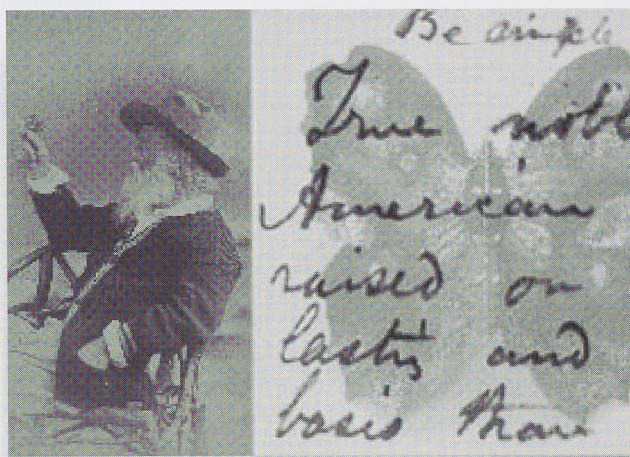 Be
True nobl
American
raised on
lasting and
basis than